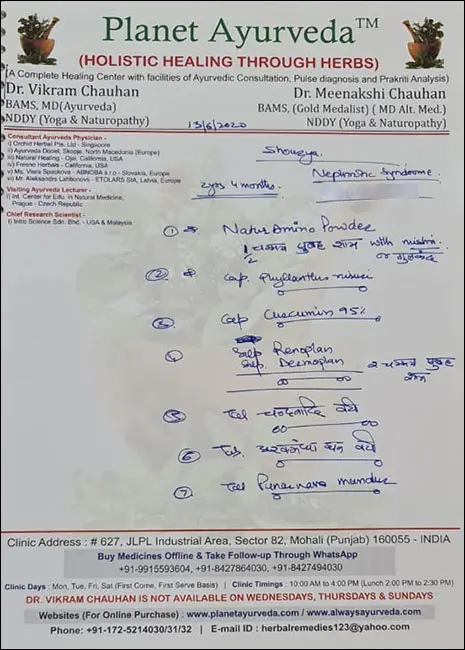 Planet Ayurveda™
(HOLISTIC HEALING THROUGH HERBS)
(A Complete Healing Center with facilities of Ayurvedic Consultation, Pulse diagnosis and Prakriti Analysis)
Dr. Vikram Chauhan
BAMS, MD(Ayurveda)
NDDY (Yoga & Naturopathy)
Dr. Meenakshi Chauhan
BAMS, (Gold Medalist) ( MD Alt. Med.)
NDDY (Yoga & Naturopathy)
13/6/2020
Consultant Ayurveda Physician -
i) Orchid Herbal Pte. Ltd - Singapore
ii) Ayurveda Dooel, Skopje, North Macedonia (Europe)
iii) Natural Healing - Ojai, California, USA
iv) Fresno Herbals - California, USA
v) Ms. Viera Spiakova - ABNOBA s.r.o - Slovakia, Europe
vi) Mr. Aleksandrs Lahtionovs - ETOLARS SIA, Latvia, Europe
Visiting Ayurveda Lecturer -
i) Int. Center for Edu. in Natural Medicine,
Prague - Czech Republic
Chief Research Scientist -
i) Intro Science Sdn. Bhd. - USA & Malaysia
Shourya
2yrs 4 months.
Nephrotic Syndrome
① Natur Amino Powder
1/2 चम्मच सुबह शाम with mishri
or गुलकंद
② Cap. Phyllanthus niruri
③ Cap Curcumin 95%
④ Syp Renoplan
Syp. Dermoplan
2 चम्मच सुबह
शाम
⑤ Tab चन्दनादि वटी
⑥ Tab. अश्वगंधा घन वटी
⑦ Tab Punarnava mandur
Clinic Address : # 627, JLPL Industrial Area, Sector 82, Mohali (Punjab) 160055 - INDIA
Buy Medicines Offline & Take Follow-up Through WhatsApp
+91-9915593604, +91-8427864030, +91-8427494030
Clinic Days : Mon, Tue, Fri, Sat (First Come, First Serve Basis) | Clinic Timings : 10:00 AM to 4:00 PM (Lunch 2:00 PM to 2:30 PM)
DR. VIKRAM CHAUHAN IS NOT AVAILABLE ON WEDNESDAYS, THURSDAYS & SUNDAYS
Websites (For Online Purchase) : www.planetayurveda.com / www.alwaysayurveda.com
Phone: +91-172-5214030/31/32 | E-mail ID : herbalremedies123@yahoo.com